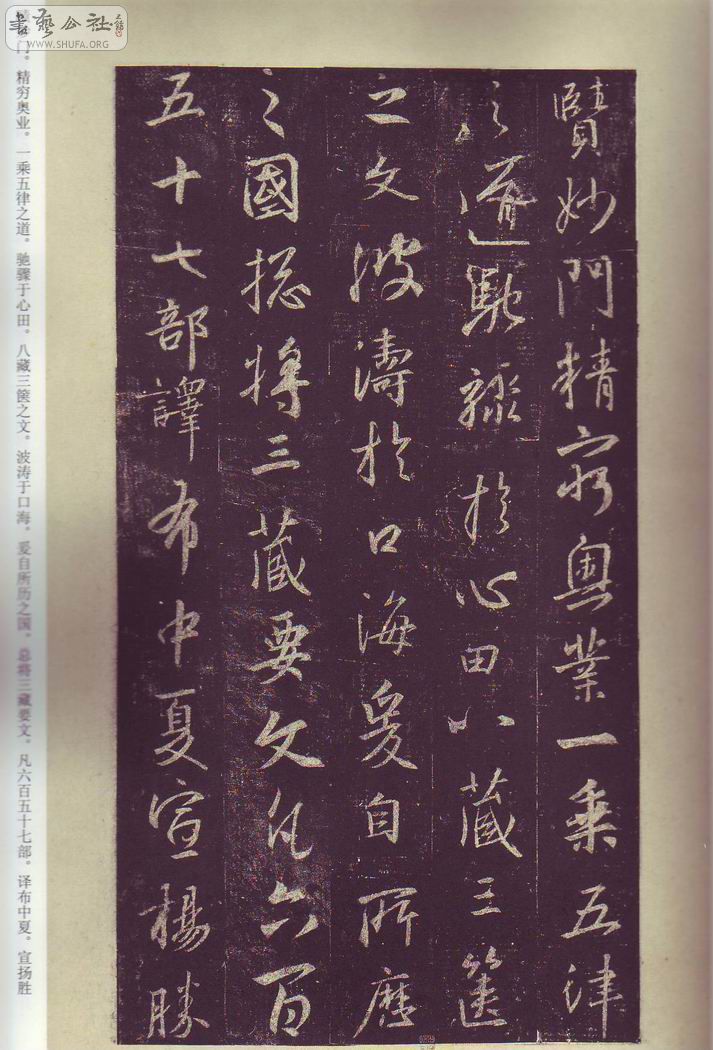 賾妙門精窮奧業一乘五律
之道馳驟於心田八藏三篋
之文波濤於口海爰自所歷
之國總將三藏要文凡六百
五十七部譯布中夏宣揚勝
妙门。精穷奥业。一乘五律之道。驰骤于心田。八藏三箧之文。波涛于口海。爰自所历之国。总将三藏要文。凡六百五十七部。译布中夏。宣扬胜
書藝公社
WWW.SHUFA.ORG